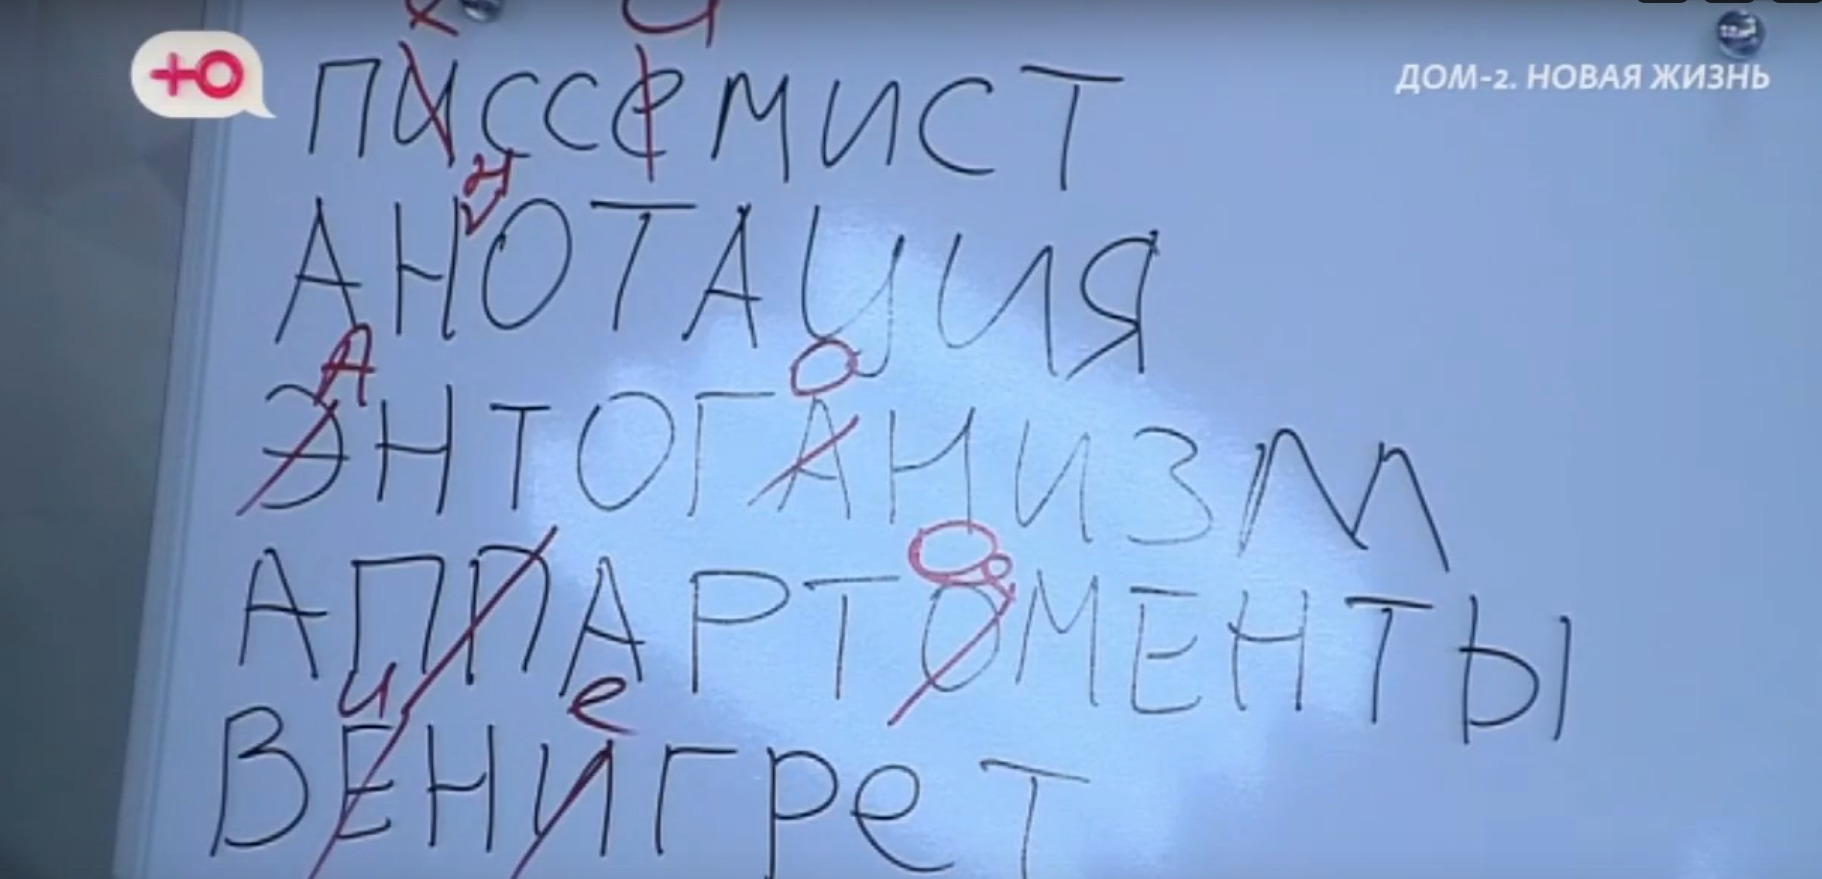 Ю
ДОМ-2. НОВАЯ ЖИЗНЬ
е и
ПИССЕМИСТ
Н
АНОТАЦИЯ
А О
ЭНТОГАНИЗМ
АППАРТОМЕНТЫ
и е
ВЕНИГРЕТ